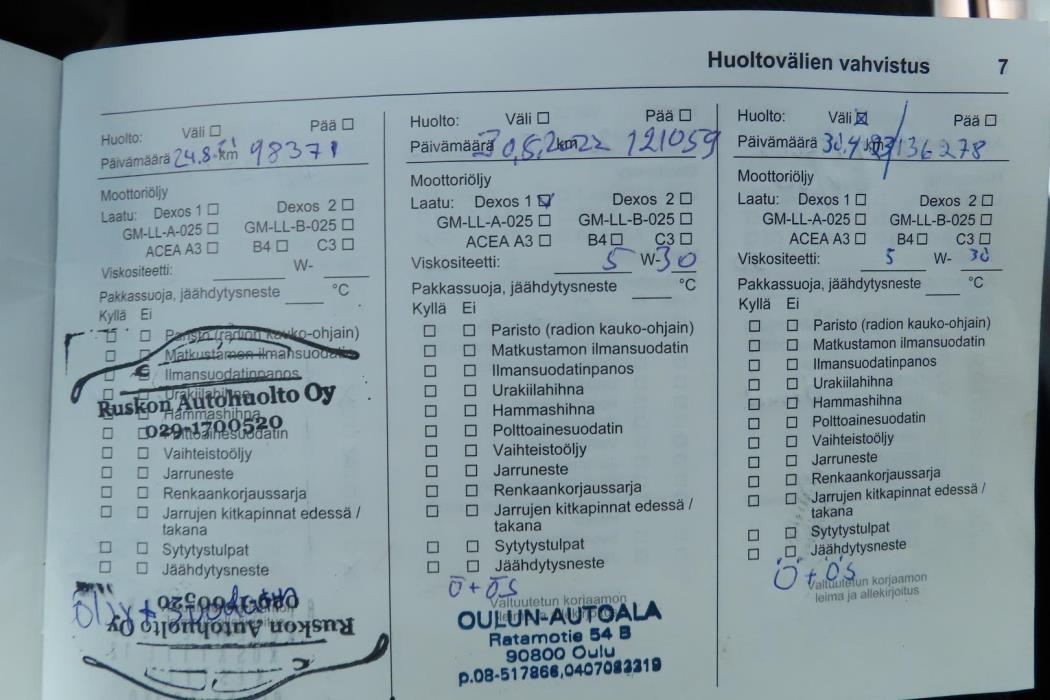 Huoltovälien vahvistus 7
Huolto: Väli Pää
Päivämäärä 24.8.21 km 98371
Moottoriöljy
Laatu: Dexos 1 Dexos 2
GM-LL-A-025 GM-LL-B-025
ACEA A3 B4 C3
Viskositeetti: W-
Pakkassuoja, jäähdytysneste °C
Kyllä Ei
Paristo (radion kauko-ohjain)
Matkustamon ilmansuodatin
Ilmansuodatinpanos
Urakiilahihna
Ruskon Autohuolto Oy
Hammashihna
029-1700520
Polttoainesuodatin
Vaihteistoöljy
Jarruneste
Renkaankorjaussarja
Jarrujen kitkapinnat edessä /
takana
Sytytystulpat
Jäähdytysneste
029-1700520
Ruskon Autohuolto Oy
Huolto: Väli Pää
Päivämäärä 30,5,2022 km 121059
Moottoriöljy
Laatu: Dexos 1 Dexos 2
GM-LL-A-025 GM-LL-B-025
ACEA A3 B4 C3
Viskositeetti: 5 W-30
Pakkassuoja, jäähdytysneste °C
Kyllä Ei
Paristo (radion kauko-ohjain)
Matkustamon ilmansuodatin
Ilmansuodatinpanos
Urakiilahihna
Hammashihna
Polttoainesuodatin
Vaihteistoöljy
Jarruneste
Renkaankorjaussarja
Jarrujen kitkapinnat edessä /
takana
Sytytystulpat
Jäähdytysneste
Ö + ÖS
Valtuutetun korjaamon
leima ja allekirjoitus
OULUN-AUTOALA
Ratamotie 54 B
90800 Oulu
p.08-517866,0407082219
Huolto: Väli Pää
Päivämäärä 30,4 23 km 136278
Moottoriöljy
Laatu: Dexos 1 Dexos 2
GM-LL-A-025 GM-LL-B-025
ACEA A3 B4 C3
Viskositeetti: 5 W- 30
Pakkassuoja, jäähdytysneste °C
Kyllä Ei
Paristo (radion kauko-ohjain)
Matkustamon ilmansuodatin
Ilmansuodatinpanos
Urakiilahihna
Hammashihna
Polttoainesuodatin
Vaihteistoöljy
Jarruneste
Renkaankorjaussarja
Jarrujen kitkapinnat edessä /
takana
Sytytystulpat
Jäähdytysneste
Ö + ÖS
Valtuutetun korjaamon
leima ja allekirjoitus